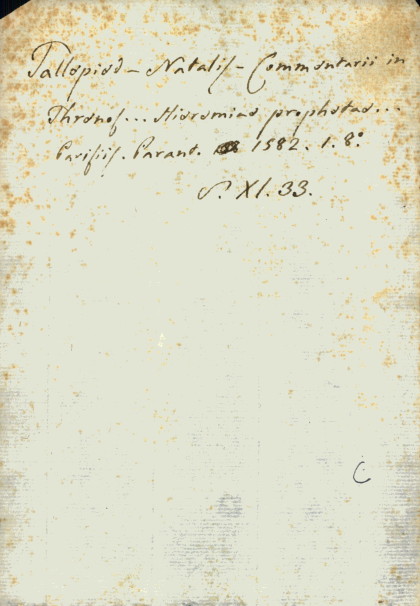 Taillepied - Natalis - Commentarii in
Threnos... Hieremiae prophetae...
Parisiis. Parant. 1582. 1. 8º
S. XI. 33.
C